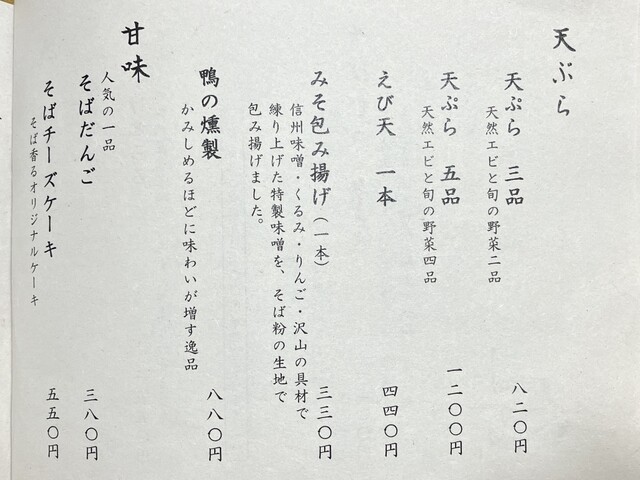 天ぷら
天ぷら 三品 八二〇円
天然エビと旬の野菜二品
天ぷら 五品 一二〇〇円
天然エビと旬の野菜四品
えび天 一本 四四〇円
みそ包み揚げ(一本) 三三〇円
信州味噌・くるみ・りんご・沢山の具材で
練り上げた特製味噌を、そば粉の生地で
包み揚げました。
鴨の燻製 八八〇円
かみしめるほどに味わいが増す逸品
甘味
人気の一品
そばだんご 三八〇円
そばチーズケーキ 五五〇円
そば香るオリジナルケーキ